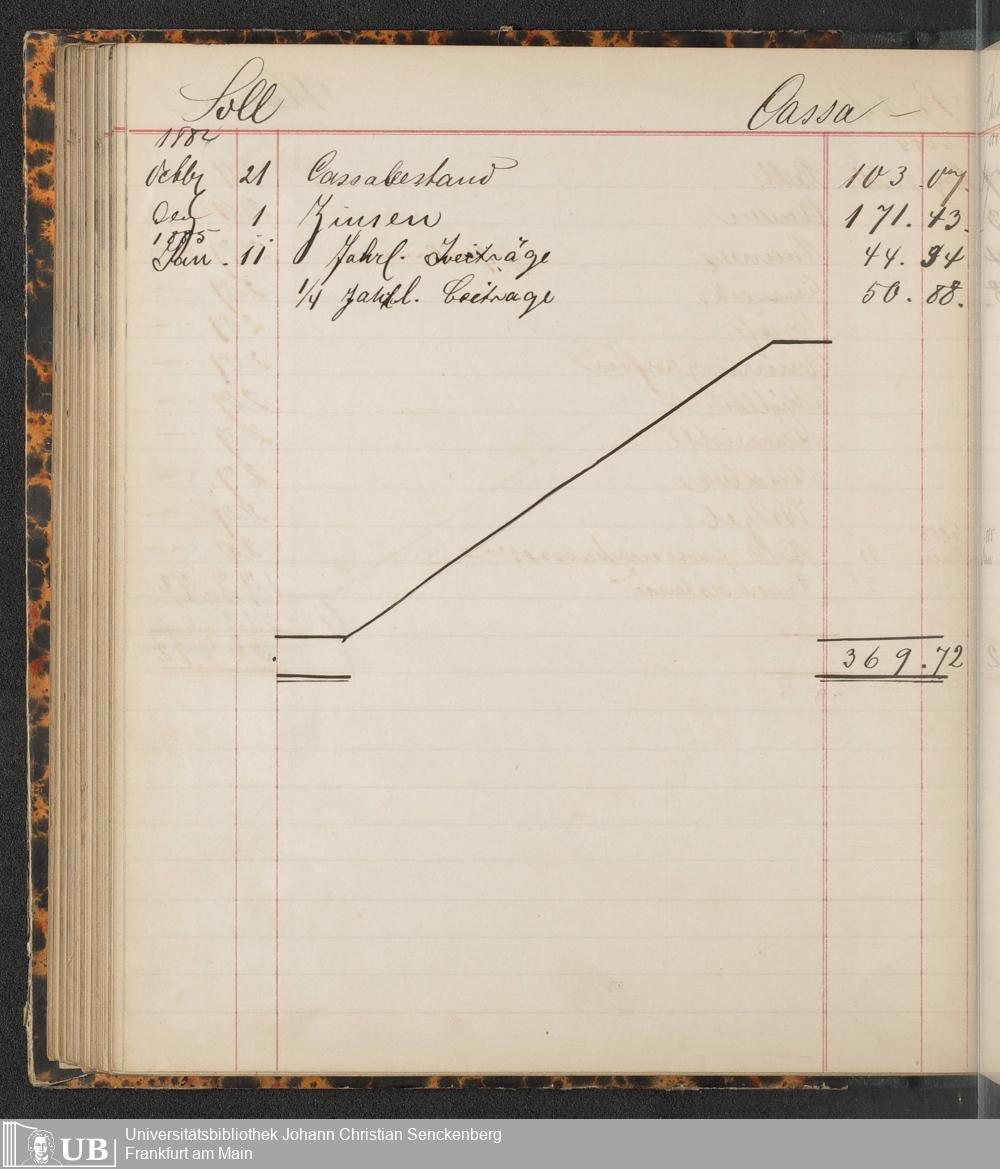 Soll Cassa
1884
Octbr 21 Cassabestand 103.07.
Dec 1 Zinsen 171.43.
1885
Jan. 11 Jahrl. Beiträge 44.34
1/4 Jahrl. Beitrage 50.88.
369.72
UB Universitätsbibliothek Johann Christian Senckenberg
Frankfurt am Main